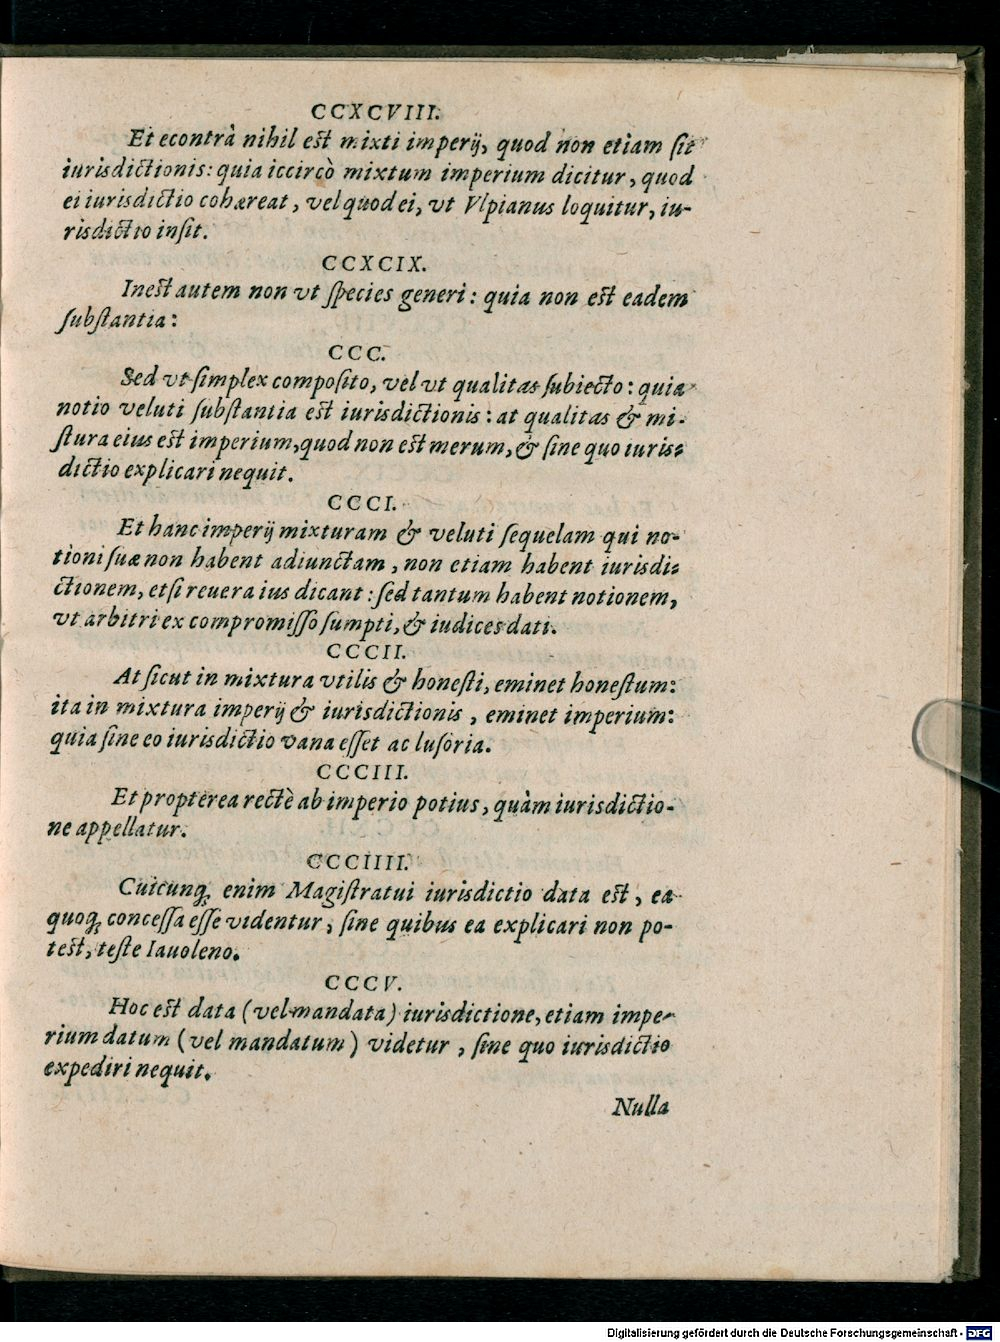 CCXCVIII.
Et econtrà nihil est mixti imperij, quod non etiam ſit
iurisdictionis: quia iccircò mixtum imperium dicitur, quod
ei iurisdictio cohæreat, vel quod ei, vt Vlpianus loquitur, iu-
risdictio inſit.
CCXCIX.
Inest autem non vt ſpecies generi: quia non est eadem
ſubſtantia:
CCC.
Sed vt ſimplex compoſito, vel vt qualitas ſubiecto: quia
notio veluti ſubſtantia est iurisdictionis: at qualitas & mi-
ſtura eius est imperium, quod non est merum, & ſine quo iuris-
dictio explicari nequit.
CCCI.
Et hanc imperij mixturam & veluti ſequelam qui no-
tioni ſuæ non habent adiunctam, non etiam habent iurisdi-
ctionem, etſi reuera ius dicant: ſed tantum habent notionem,
vt arbitri ex compromiſſo ſumpti, & iudices dati.
CCCII.
At ſicut in mixtura vtilis & honeſti, eminet honeſtum:
ita in mixtura imperij & iurisdictionis, eminet imperium:
quia ſine eo iurisdictio vana eſſet ac luſoria.
CCCIII.
Et propterea rectè ab imperio potius, quàm iurisdictio-
ne appellatur.
CCCIIII.
Cuicunq; enim Magiſtratui iurisdictio data est, ea
quoq; conceſſa eſſe videntur, ſine quibus ea explicari non po-
test, teſte Iauoleno.
CCCV.
Hoc est data (vel mandata) iurisdictione, etiam impe-
rium datum (vel mandatum) videtur, ſine quo iurisdictio
expediri nequit.
Nulla
Digitalisierung gefördert durch die Deutsche Forschungsgemeinschaft - DFG